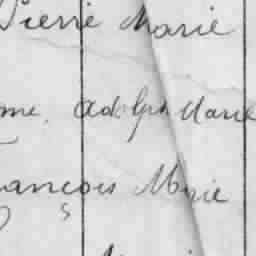 Pierre Marie
me. Adolph Marie
rançois Marie